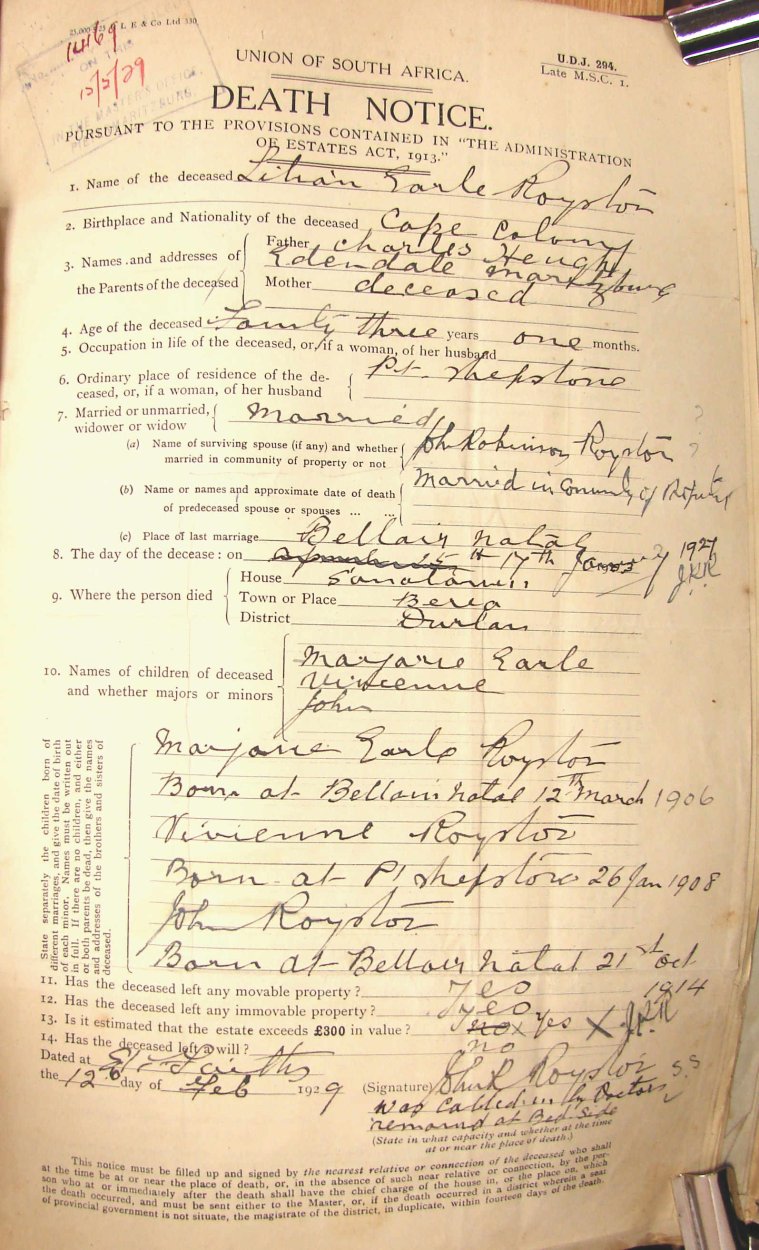 L E & Co Ltd 330
14469
ON THE
15/5/29
IN THE MASTER'S OFFICE,
U.D.J. 294.
Late M.S.C. 1.
UNION OF SOUTH AFRICA.
DEATH NOTICE.
PURSUANT TO THE PROVISIONS CONTAINED IN "THE ADMINISTRATION
OF ESTATES ACT, 1913."
1. Name of the deceased Lilian Earle Royston
2. Birthplace and Nationality of the deceased Cape Colony
3. Names and addresses of the Parents of the deceased
Father Charles
Edendale Maritzburg
Mother deceased
4. Age of the deceased Fourty three years one months.
5. Occupation in life of the deceased, or, if a woman, of her husband
6. Ordinary place of residence of the deceased, or, if a woman, of her husband
Pt. Shepstone
7. Married or unmarried, widower or widow
Married
(a) Name of surviving spouse (if any) and whether married in community of property or not
John Robinson Royston
(b) Name or names and approximate date of death of predeceased spouse or spouses ... ...
Married in Comunity of Property
(c) Place of last marriage Bellair Natal
8. The day of the decease: on 17th 1927
J.R.R
9. Where the person died
House Sanatorium
Town or Place Berea
District Durban
10. Names of children of deceased and whether majors or minors
Marjorie Earle
Vivienne
John
State separately the children born of
different marriages, and give the date of birth
of each minor. Names must be written out
in full. If there are no children, and either
or both parents be dead, then give the names
and addresses of the brothers and sisters of
deceased.
Marjorie Earle Royston
Born at Bellair Natal 12th March 1906
Vivienne Royston
Born at Pt Shepstone 26 Jan 1908
John Royston
Born at Bellair Natal 21st Oct
1914
11. Has the deceased left any movable property? Yes
12. Has the deceased left any immovable property? Yes
13. Is it estimated that the estate exceeds £300 in value? no x Yes X J.R.R
14. Has the deceased left a will? no
Dated at St. Faiths
the 12th day of Feb 1929 (Signature) John R Royston S.S
was called in by Doctors
remained at Bed Side
(State in what capacity and whether at the time
at or near the place of death.)
This notice must be filled up and signed by the nearest relative or connection of the deceased who shall
at the time be at or near the place of death, or, in the absence of such near relative or connection, by the per-
son who at or immediately after the death shall have the chief charge of the house in, or the place on, which
the death occurred, and must be sent either to the Master, or, if the death occurred in a district wherein a seat
of provincial government is not situate, the magistrate of the district, in duplicate, within fourteen days of the death.